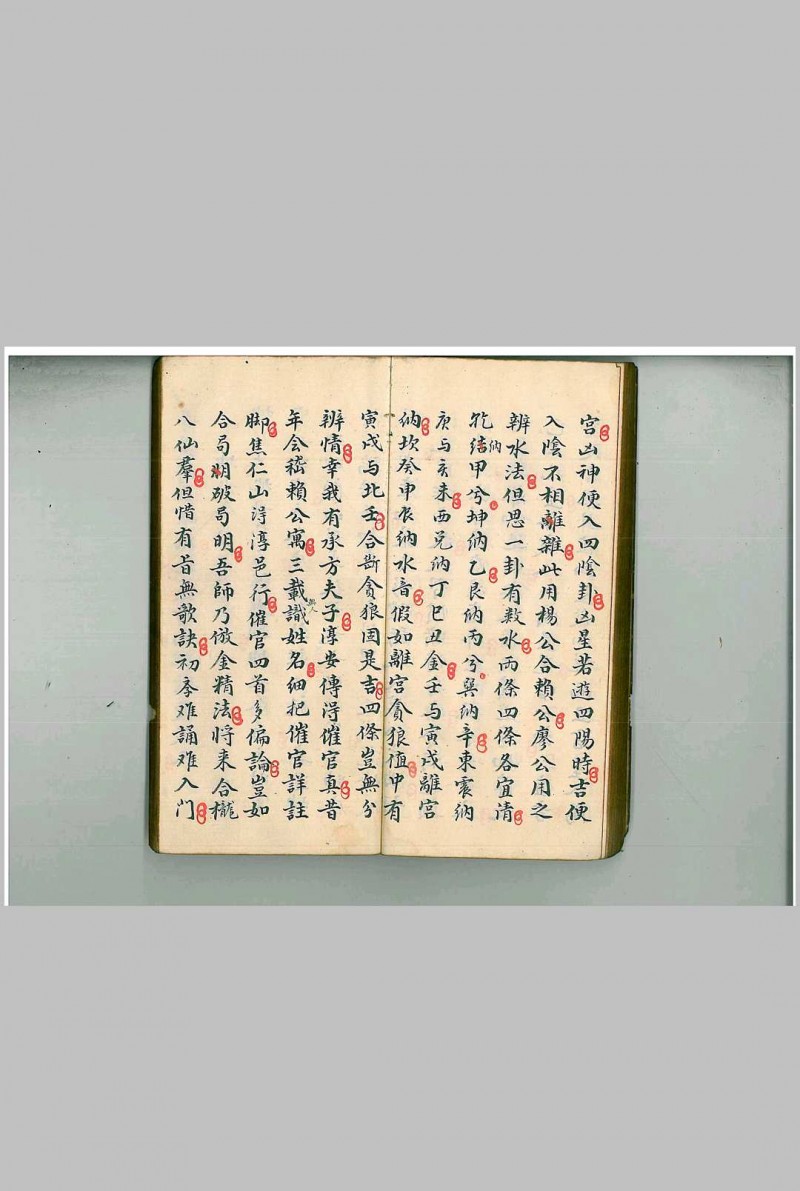 宮凶神便入四陰卦凶星若遊四陽時吉便
入陰不相離雜此用楊公合賴公廖公用之
辨水法但思一卦有数水两條四條各宜清
乾納甲兮坤納乙艮納丙兮巽納辛東震納
庚与亥未西兑納丁巳丑金壬与寅戌離宮
納坎癸申辰納水音假如離宮貪狼值中有
寅戌与北壬合断貪狼因是吉四條豈無分
辨情幸我有承方夫子淳安傳淂催官真昔
年会嵇賴公寓三載無人識姓名細把催官詳註
脚焦仁山淂淳邑行催官四首多偏論豈如
合局明破局明吾師乃倣金精法将来合櫳
八仙羣但惜有旨無歌訣初季难誦难入門